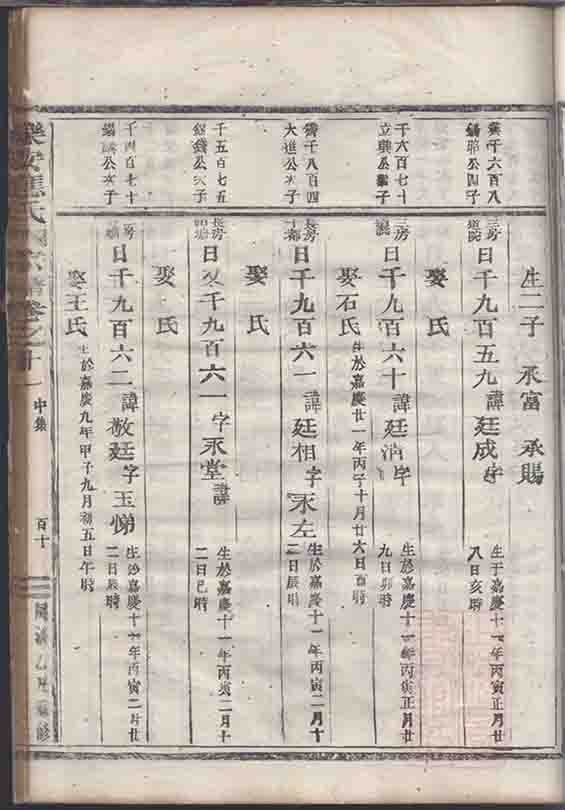 生二子 承富 承賜
千六百八
錫 公四子
三房
日千九百五九諱廷成字
生于嘉慶十一年丙寅正月廿
八日亥時
娶 氏
千六百七十
立 公 子
三房
日千九百六十諱廷 字
生於嘉慶十一年丙寅正月廿
九日卯時
娶石氏
生於嘉慶廿一年丙子十月廿六日酉時
千八百四
大進公次子
長房
日千九百六一諱廷相字永左
生於嘉慶十一年丙寅二月十
二日辰時
娶 氏
千五百七五
公次子
長房
日又千九百六一字永堂諱
生於嘉慶十一年丙寅二月十
二日巳時
娶 氏
千四百七十
公次子
房
日千九百六二諱敬廷字玉悌
生於嘉慶十一年丙寅二月廿
二日辰時
娶王氏
生於嘉慶九年甲子九月初五日午時
樂安 氏 卷之十一
中集
百十